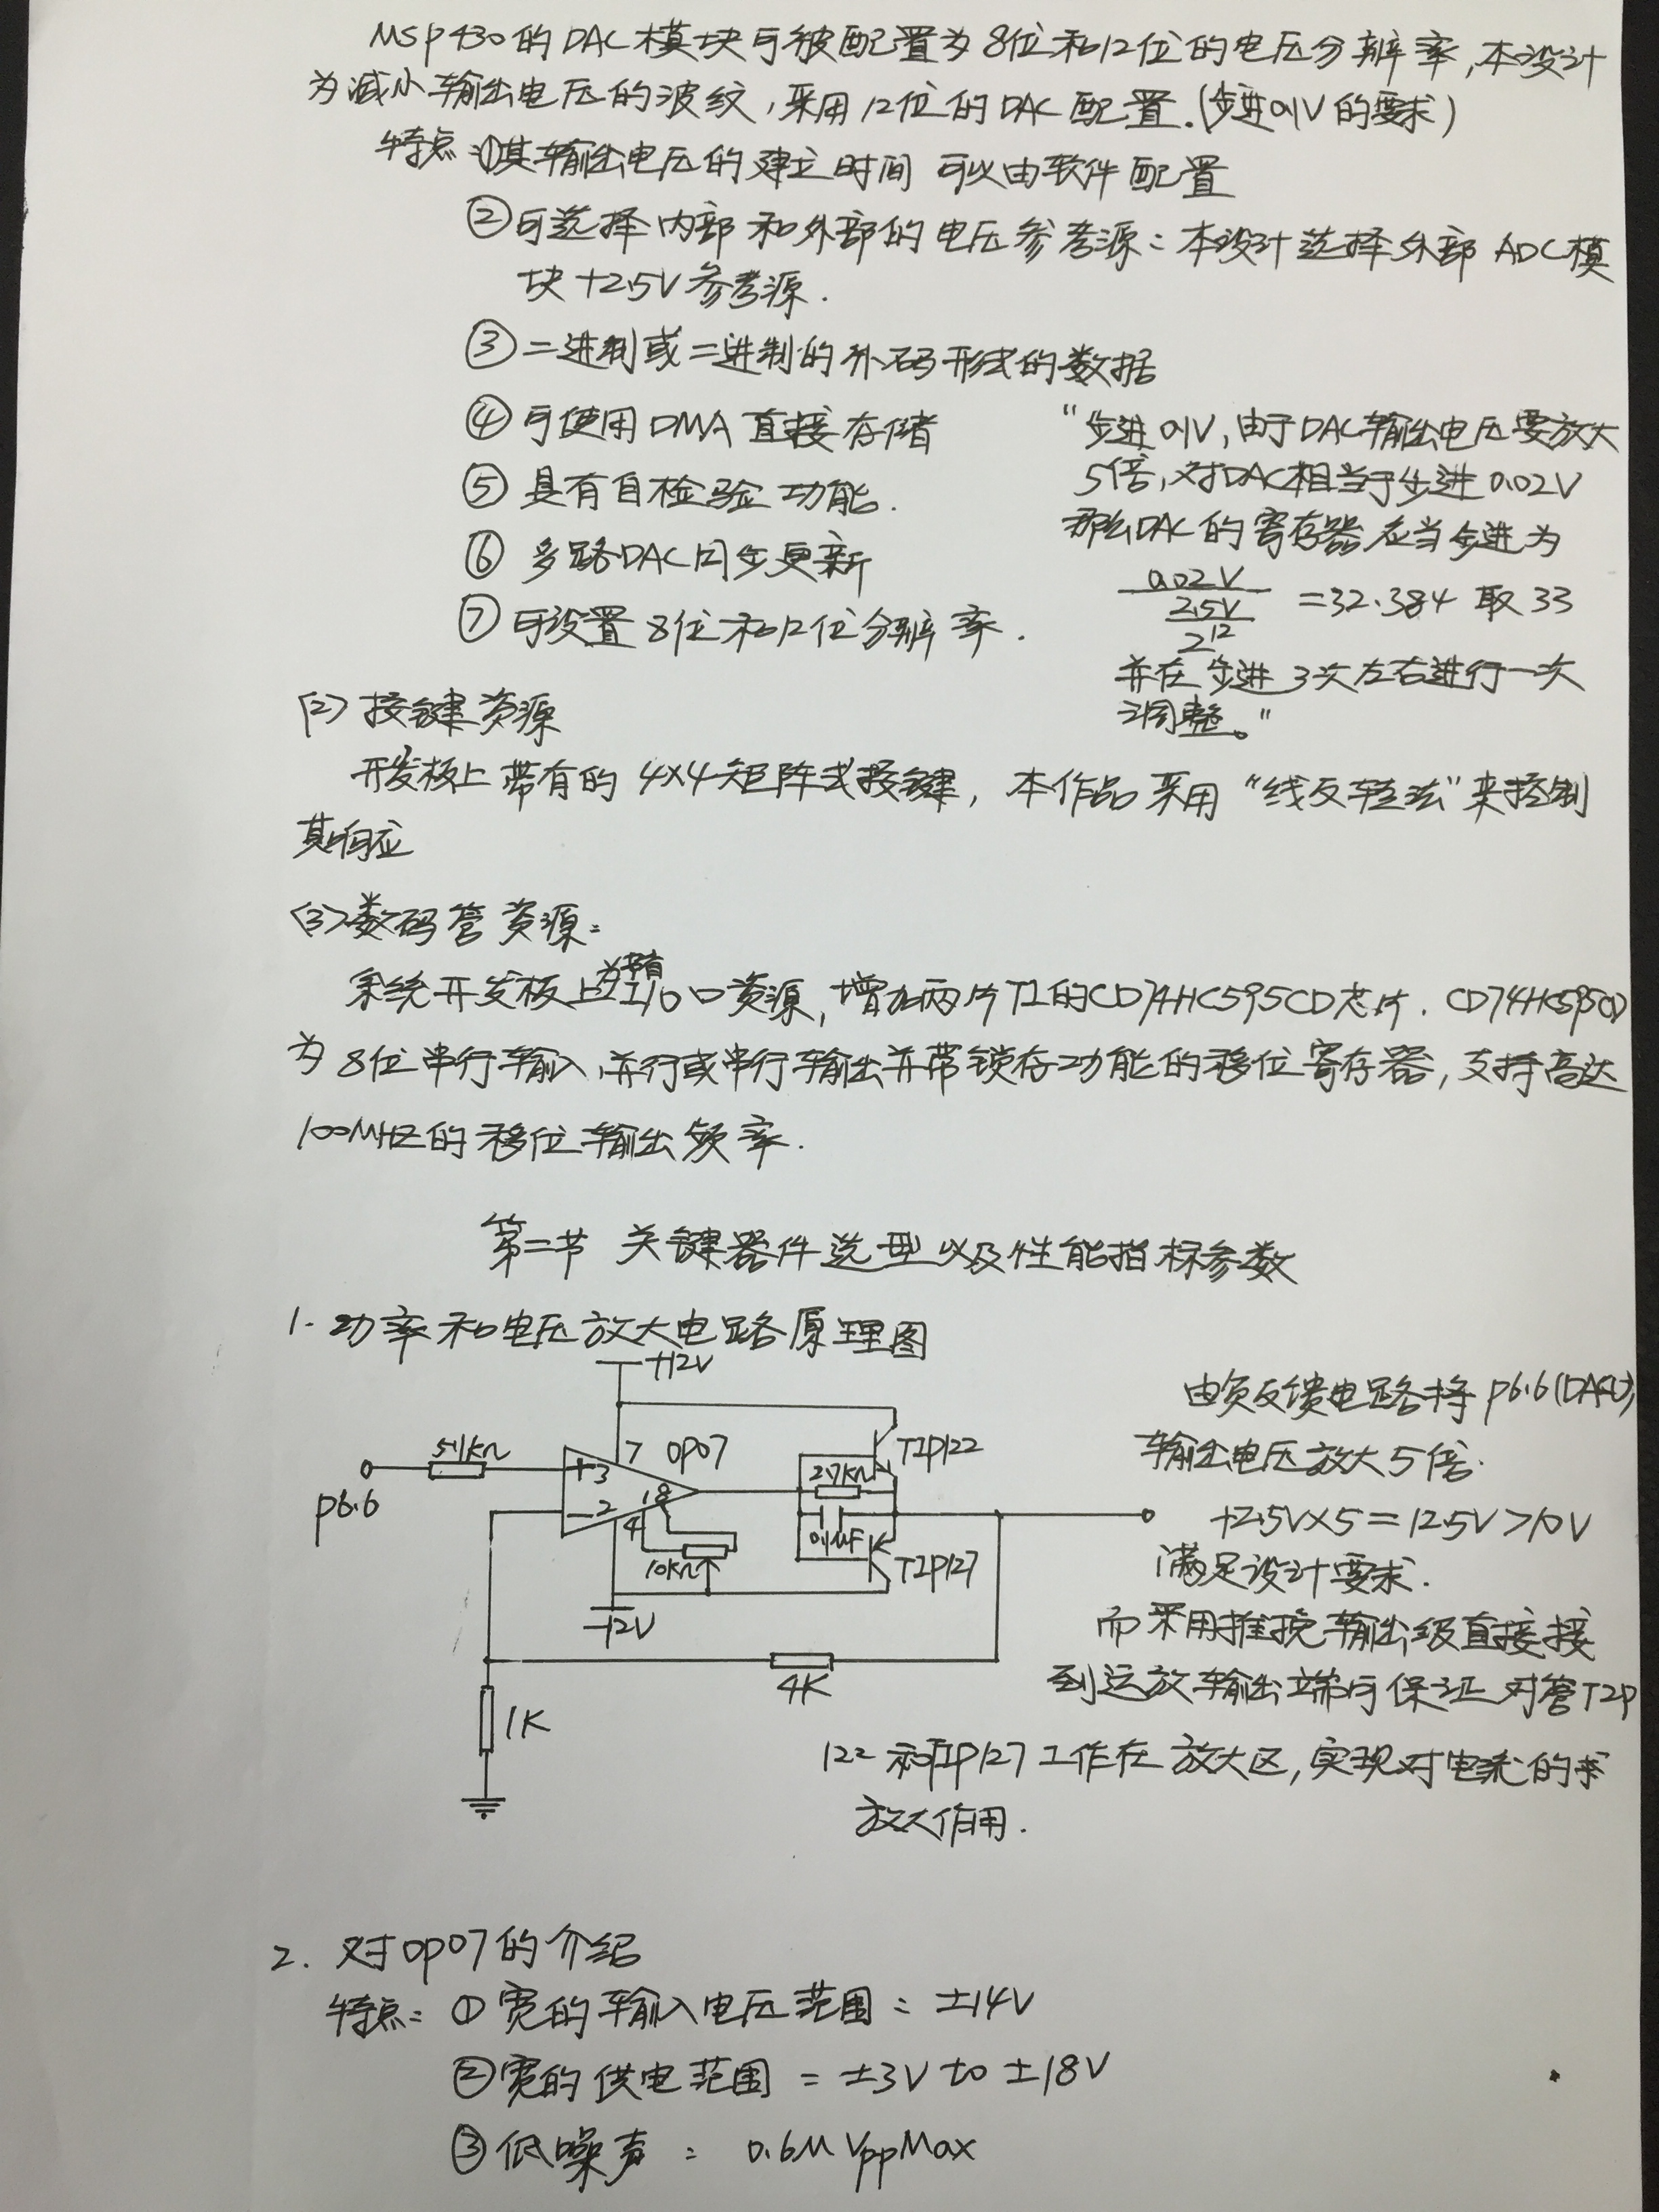 MSP430的DAC模块可被配置为8位和12位的电压分辨率,本设计
为减小输出电压的波纹,采用12位的DAC配置.(步进0.1V的要求)
特点:①其输出电压的建立时间 可以由软件配置
②可选择内部和外部的电压参考源:本设计选择外部 ADC模
块+2.5V参考源.
③二进制或二进制的补码形式的数据
④可使用DMA直接存储
⑤具有自检验功能.
⑥多路DAC同步更新
⑦可设置8位和12位分辨率.
“步进0.1V,由于DAC输出电压要放大
5倍,对DAC相当于步进0.02V
那么DAC的寄存器应当步进为
0.02V
2.5V
2^12
=32.384 取33
并在步进3次左右进行一次
调整。”
(2)按键资源
开发板上带有的4×4矩阵式按键,本作品采用“线反转法”来控制
其响应
(3)数码管资源:
系统开发板上为节省I/O口资源,增加两片TI的CD74HC595CD芯片.CD74HC595CD
为8位串行输入、并行或串行输出并带锁存功能的移位寄存器,支持高达
100MHZ的移位输出频率.
第二节 关键器件选型以及性能指标参数
1.功率和电压放大电路原理图
+12V
5.1KΩ
P6.6
+3
-2
7
OP07
18
4
10KΩ
-12V
2.7KΩ
0.1uF
TIP122
TIP127
4K
1K
由负反馈电路将P6.6(DAC0)
输出电压放大5倍.
+2.5V×5=12.5V>10V
满足设计要求.
而采用推挽输出级直接接
到运放输出端可保证对管TIP
122和TIP127工作在放大区,实现对电流的
放大作用.
2.对OP07的介绍
特点:①宽的输入电压范围:±14V
②宽的供电范围:±3V to ±18V
③低噪声:0.6μVppMax